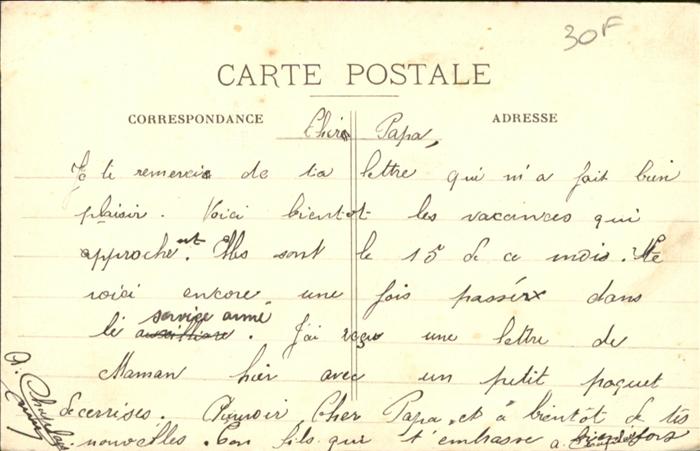 30F
CARTE POSTALE
CORRESPONDANCE
ADRESSE
Cher Papa,
Je te remercie de ta lettre qui m'a fait bien
plaisir. Voici bientot les vacances qui
approchent. Elles sont le 15 de ce mois. Me
voici encore une fois passé dans
le service armé. J'ai reçu une lettre de
Maman hier avec un petit paquet
de cerises. Au revoir Cher Papa et à bientôt de tes
nouvelles. Ton fils qui t'embrasse